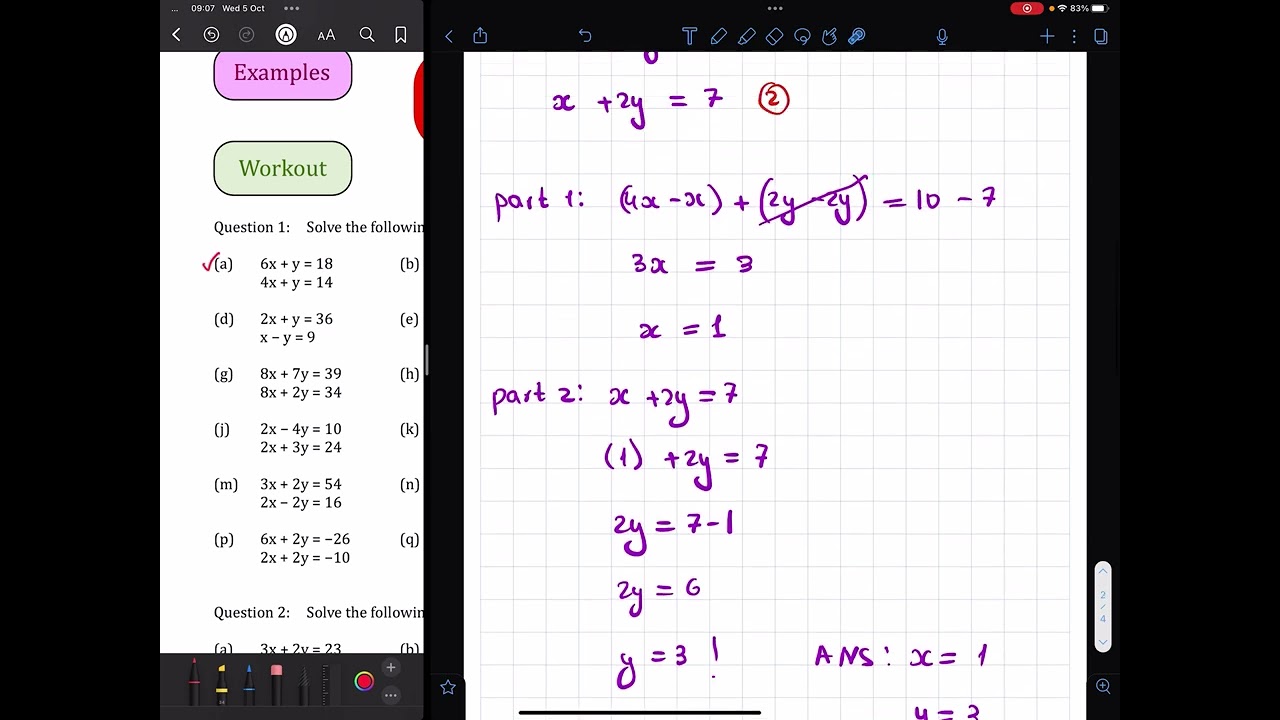 ... 09:07 Wed 5 Oct
83%
AA
T
Examples
Workout
Question 1: Solve the followin
(a) 6x + y = 18 (b)
4x + y = 14
(d) 2x + y = 36 (e)
x − y = 9
(g) 8x + 7y = 39 (h)
8x + 2y = 34
(j) 2x − 4y = 10 (k)
2x + 3y = 24
(m) 3x + 2y = 54 (n)
2x − 2y = 16
(p) 6x + 2y = −26 (q)
2x + 2y = −10
Question 2: Solve the followin
(a) 3x + 2y = 23 (b)
x + 2y = 7 ②
part 1: (4x - x) + (2y - 2y) = 10 - 7
3x = 3
x = 1
part 2: x + 2y = 7
(1) + 2y = 7
2y = 7 - 1
2y = 6
y = 3 !
ANS: x = 1
y = 3
2 / 4